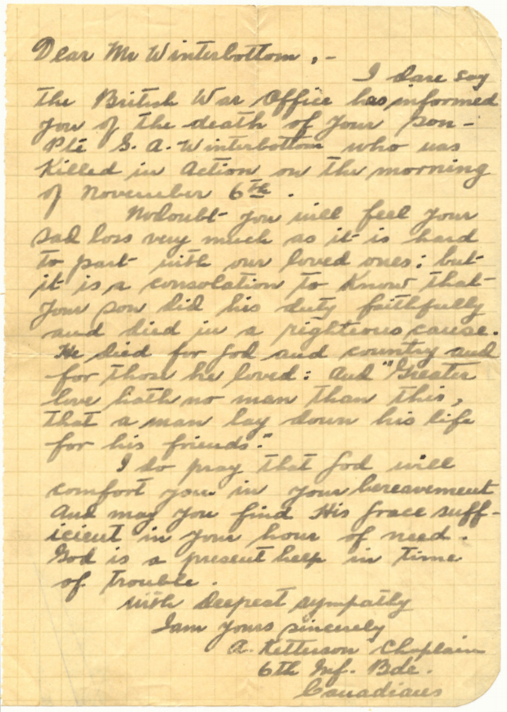 Dear Mr Winterbottom,-
I dare say
the British War Office has informed
you of the death of your son-
Pte G. A. Winterbottom who was
Killed in Action on the morning
of November 6th.
No doubt you will feel your
sad loss very much as it is hard
to part with our loved ones: but
it is a consolation to Know that
your son did his duty faithfully
and died in a righteous cause.
He died for God and country and
for those he loved: And "Greater
love hath no man than this,
that a man lay down his life
for his friends."
I do pray that God will
comfort you in your bereavement
And may you find His Grace suff-
icient in your hour of need.
God is a present help in time
of trouble.
with deepest sympathy
I am yours sincerely
A. Ketterson Chaplain
6th Inf. Bde.
Canadians